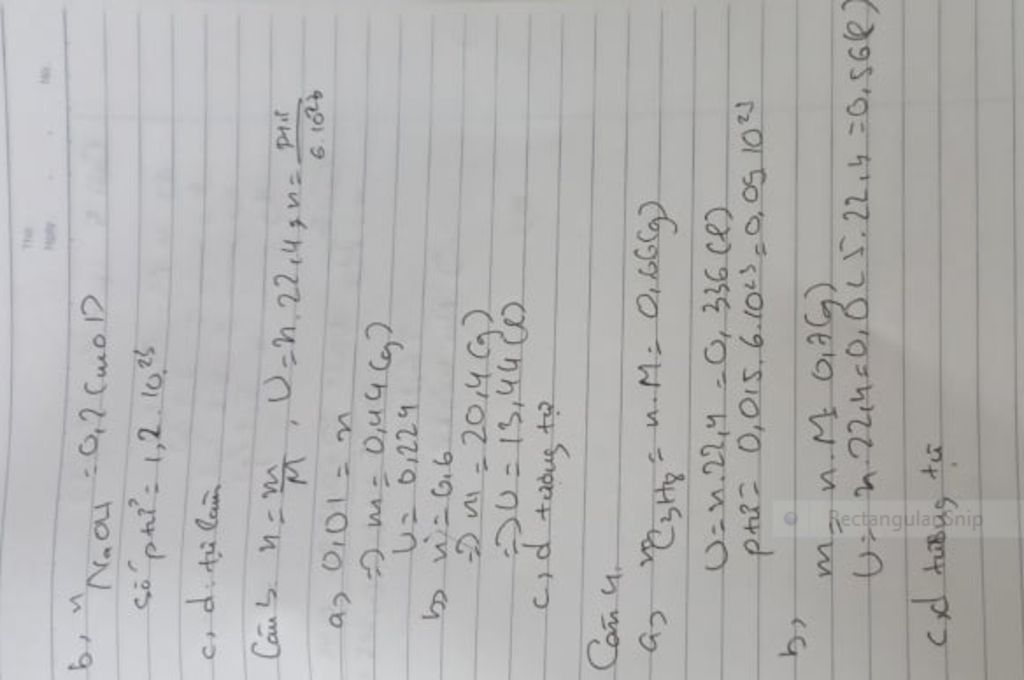 Thứ
Ngày
No.
b, n NaOH = 0,2 (mol)
số ptử = 1,2.10²³
c, d. tự làm
Câu 3. n = m/M, V = n.22,4, n = ptử/6.10²³
a, 0,01 = n
=> m = 0,44 (g)
V = 0,224
b, n = 0,6
=> m = 20,4 (g)
=> V = 13,44 (l)
c, d tương tự
Câu 4.
a, m C₃H₈ = n.M = 0,66 (g)
V = n.22,4 = 0,336 (l)
ptử = 0,015.6.10²³ = 0,09.10²³
b,
m = n.M = 0,7 (g)
V = n.22,4 = 0,025.22,4 = 0,56 (l)
c, d tương tự
Rectangular Snip